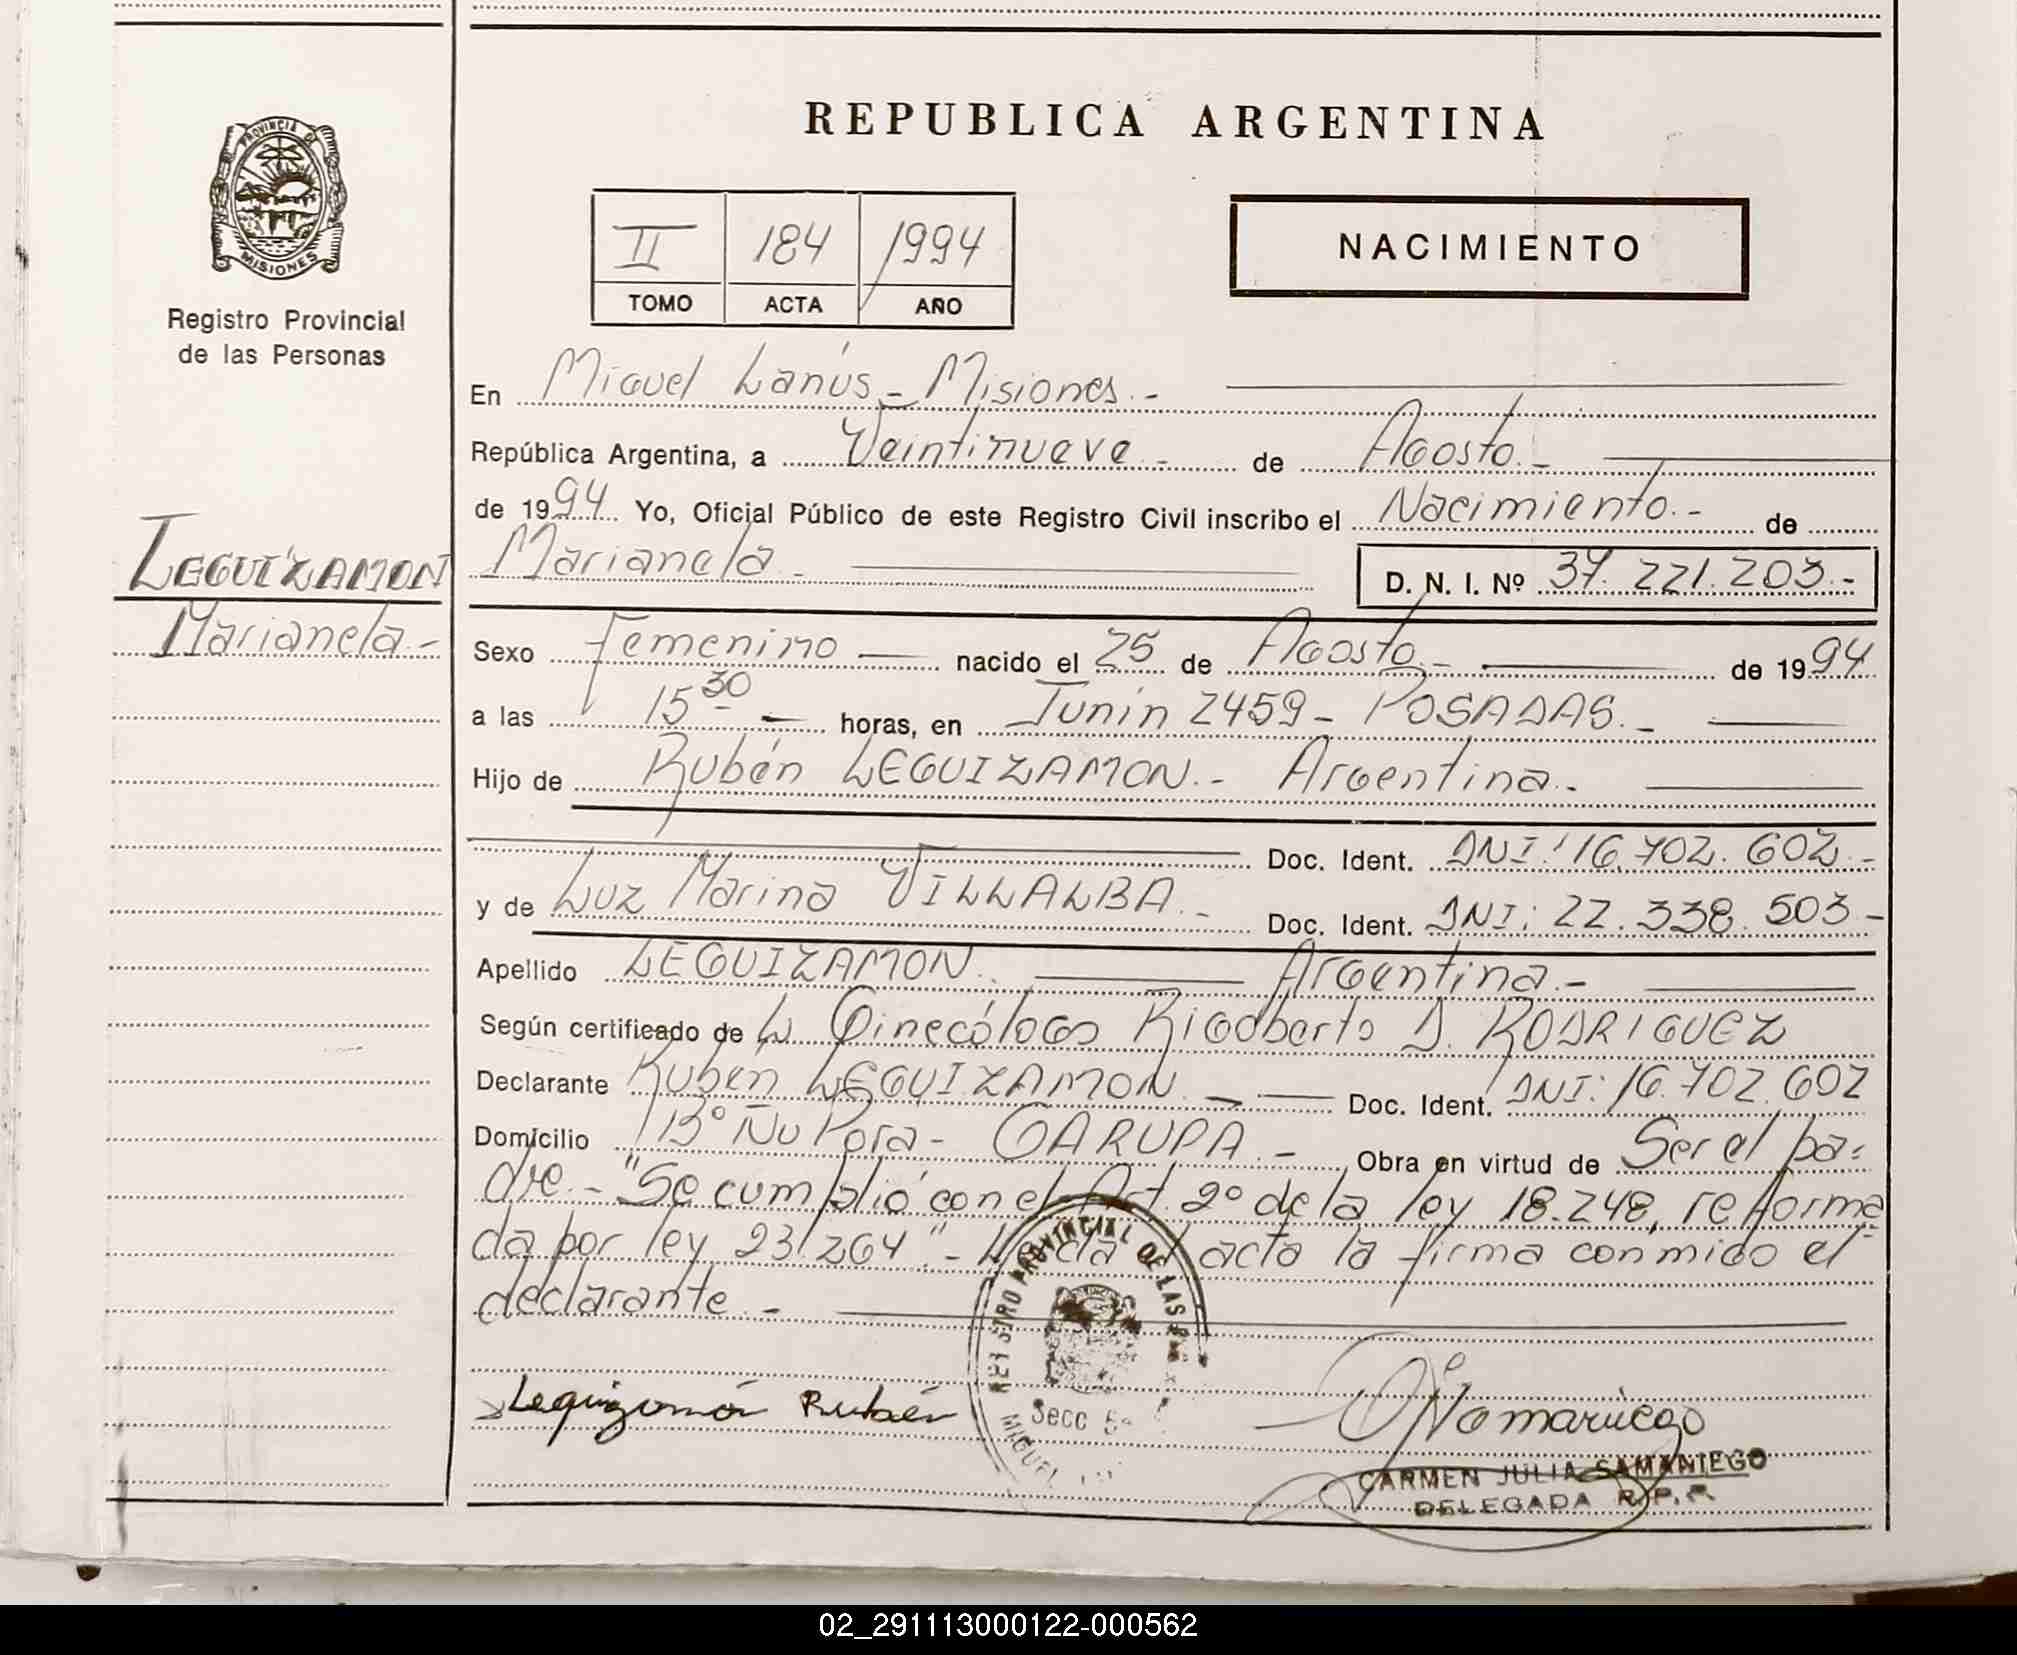 REPUBLICA ARGENTINA
PROVINCIA DE
MISIONES
Registro Provincial
de las Personas
II 184 1994
TOMO ACTA AÑO
NACIMIENTO
En Miguel Lanús - Misiones.-
República Argentina, a Veintinueve - de Agosto.-
de 1994 Yo, Oficial Público de este Registro Civil inscribo el Nacimiento.- de
LEGUIZAMON
Marianela.-
Marianela - D. N. I. Nº 37.221.203.-
Sexo Femenino nacido el 25 de Agosto.- de 1994
a las 15 30 horas, en Junín 2459 - POSADAS.-
Hijo de Rubén LEGUIZAMON.- Argentina.-
Doc. Ident. DNI: 16.702.602.-
y de Luz Marina VILLALBA.- Doc. Ident. DNI: 22.338.503-
Apellido LEGUIZAMON. Argentina.-
Según certificado de L. Ginecólogo Rigoberto D. RODRIGUEZ
Declarante Rubén LEGUIZAMON.- Doc. Ident. DNI: 16.702.602
Domicilio Bº Ñu Pora - GARUPA.- Obra en virtud de Ser el pa-
dre.- "Se cumplió con el Art. 2º de la ley 18.248, reforma
da por ley 23.264".- acta la firma conmigo el
declarante.-
REGISTRO PROVINCIAL DE LAS
Secc 5ª
MIGUEL
Leguizamón Rubén
CARMEN JULIA SAMANIEGO
DELEGADA R.P.P.
02_291113000122-000562